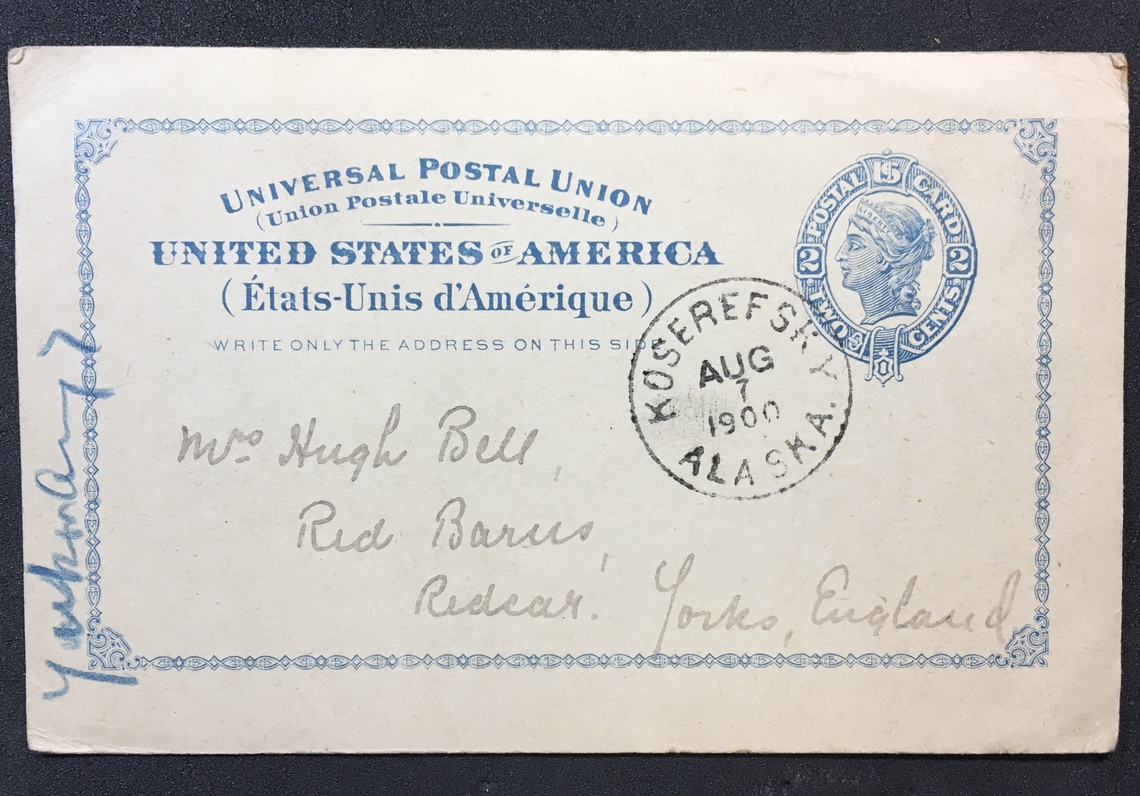 UNIVERSAL POSTAL UNION
(Union Postale Universelle)
UNITED STATES OF AMERICA
(États-Unis d'Amérique)
WRITE ONLY THE ADDRESS ON THIS SIDE
POSTAL CARD
U.S.
2 2
TWO CENTS
LIBERTY
KOSEREFSKY
AUG
7
1900
ALASKA.
Mrs Hugh Bell,
Red Barns,
Redcar. Yorks, England